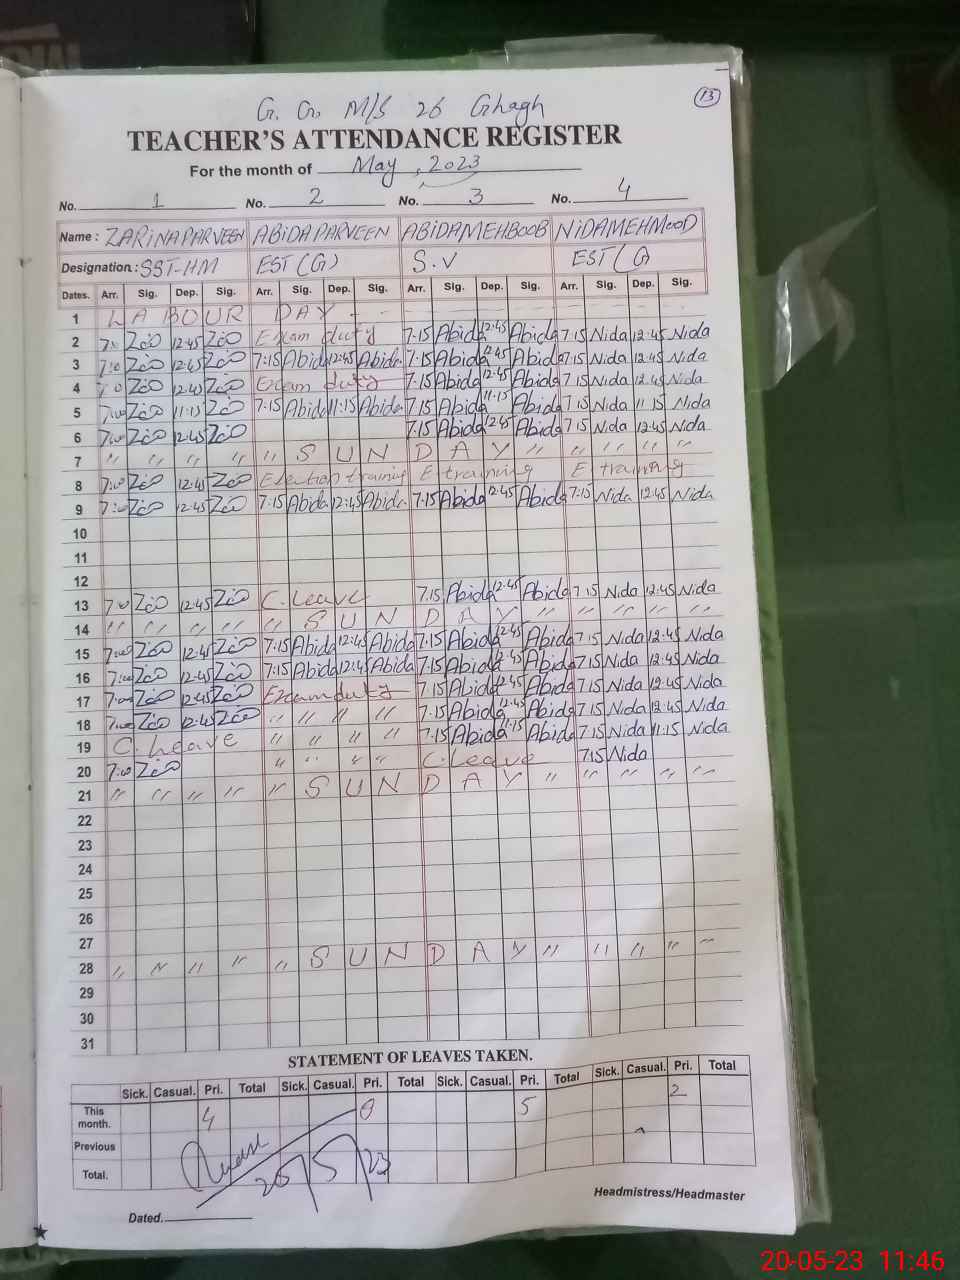 13
G. G. M/S 26 Ghagh
TEACHER'S ATTENDANCE REGISTER
For the month of May, 2023
No. 1 No. 2 No. 3 No. 4
Name : ZARINA PARVEEN ABIDA PARVEEN ABIDA MEHBOOB NIDA MEHMOOD
Designation.: SST-HM EST (G) S.V EST (G)
Dates. Arr. Sig. Dep. Sig. Arr. Sig. Dep. Sig. Arr. Sig. Dep. Sig. Arr. Sig. Dep. Sig.
1 LABOUR DAY
2 7:00 12:45 Exam duty 7:15 Abida 12:45 Abida 7:15 Nida 12:45 Nida
3 7:00 12:45 7:15 Abida 12:45 Abida 7:15 Abida 12:45 Abida 7:15 Nida 12:45 Nida
4 7:00 12:45 Exam duty 7:15 Abida 12:45 Abida 7:15 Nida 12:45 Nida
5 7:00 11:15 7:15 Abida 11:15 Abida 7:15 Abida 11:15 Abida 7:15 Nida 11:15 Nida
6 7:00 12:45 7:15 Abida 12:45 Abida 7:15 Nida 12:45 Nida
7 " " " " " SUNDAY " " " " "
8 7:00 12:45 Election training E training E training
9 7:00 12:45 7:15 Abida 12:45 Abida 7:15 Abida 12:45 Abida 7:15 Nida 12:45 Nida
10
11
12
13 7:00 12:45 C. Leave 7:15 Abida 12:45 Abida 7:15 Nida 12:45 Nida
14 " " " " " SUNDAY " " " " "
15 7:00 12:45 7:15 Abida 12:45 Abida 7:15 Abida 12:45 Abida 7:15 Nida 12:45 Nida
16 7:00 12:45 7:15 Abida 12:45 Abida 7:15 Abida 12:45 Abida 7:15 Nida 12:45 Nida
17 7:00 12:45 Exam duty 7:15 Abida 12:45 Abida 7:15 Nida 12:45 Nida
18 7:00 12:45 " " " " 7:15 Abida 12:45 Abida 7:15 Nida 12:45 Nida
19 C. Leave " " " " 7:15 Abida 11:15 Abida 7:15 Nida 11:15 Nida
20 7:00 " " " " C. Leave 7:15 Nida
21 " " " " " SUNDAY " " " " "
22
23
24
25
26
27
28 " " " " " SUNDAY " " " " "
29
30
31
STATEMENT OF LEAVES TAKEN.
Sick. Casual. Pri. Total Sick. Casual. Pri. Total Sick. Casual. Pri. Total Sick. Casual. Pri. Total
This month. 4 5 2
Previous
Total.
20/5/23
Headmistress/Headmaster
Dated.
20-05-23 11:46